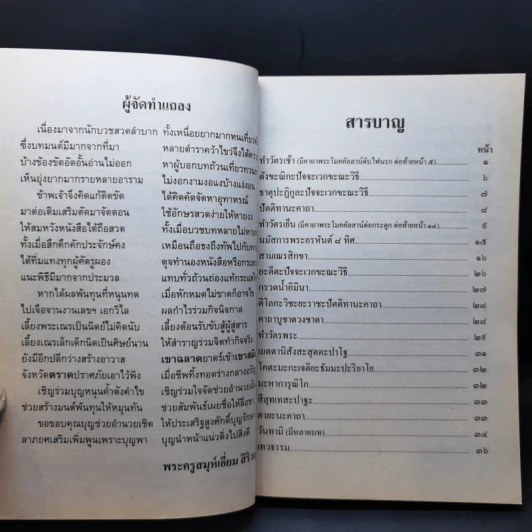 ผู้จัดทำแถลง
เนื่องมาจากนักบวชสวดลำบาก ทั้งเหนื่อยยากมากหนเที่ยว
ซึ่งบทมนต์มีมากจากที่มา หลายตำราคว้าไขว่จึงได้
บ้างข้องขัดอัดอั้นอ่านไม่ออก หาผู้บอกบทถ้วนเที่ยว
เห็นยุ่งยากมากรายหลายอาราม ไม่งอกงามงอแงบ้างแง่
ข้าพเจ้าจึงคิดแก้ติดขัด ได้คิดคัดจัดหาอุทาหรณ์
มาต่อเติมเสริมตัดมาจัดตอน ใช้อักษรสวดง่ายให้หาย
ให้สมหวังหนังสือได้ถือสวด ทั้งเมื่อบวชบทหลายไม่
ทั้งเมื่อสึกคึกคักประจักษ์คง เหมือนถือธงถึงทัพไปกับ
ได้ทิ่มแทงทุกผู้ศัตรูผอง ดุจทำนองหนังสือหรือ
แนะพิธีมีมากจากประมวล แทบทั่วถ้วนถ่องแท้
หากได้ผลพันทุนที่หนุนทด เมื่อหักหมดไม่ขาดก็อาจ
ไปเจือจานงานเลขฯ เอกวิไล ผลกำไรร่วมกิจนิจกาล
เลี้ยงพระเณรเป็นนิตย์ไม่คิดนับ เลี้ยงต้อนรับขับสู้ผู้สู่สาร
เลี้ยงเณรเล็กเด็กนิดเป็นศิษย์นาน ให้สำราญร่วมจิตทำกิจจริง
ยังมีอีกปลีกว่างสร้างอาวาส เขาฉลาดยาตร์เข้าเขา
จังหวัดตราดปราศภัยเอาไว้พิง เมื่อชีพทิ้งทอดร่างกลาง
เชิญร่วมบุญหนุนค้ำดังคำไข เชิญร่วมใจจัดช่วยอำนวย
ช่วยสร้างมนต์พันทุนให้หมุนทัน ช่วยสัมพันธ์เผยชื่อให้ลือ
ขอขอบคุณบุญช่วยอำนวยเชิด ให้ประเสริฐสูงศักดิ์บุญรักษา
ลาภยศเสริมเพิ่มพูนเพราะบุญพา บุญนำหน้าแน่วดิ่งไปสิ่งดี
พระครูสมุห์เอี่ยม สิริ
สารบาญ
หน้า
ทำวัตรเช้า (มีคาถาพระโมคคัลลาน์ดับไฟนรก ต่อท้ายหน้า ๕) ๑
ตังขะณิกะปัจจะเวกขะณะวิธี ๖
ธาตุปะฏิกูละปัจจะเวกขะณะวิธี ๗
ปัตติทานะคาถา ๘
ทำวัตรเย็น (มีคาถาพระโมคคัลลาน์ต่อกระดูก ต่อท้ายหน้า ๑๔) ๙
นมัสการพระอรหันต์ ๘ ทิศ ๑๕
สามเณรสิกขา
อะตีตะปัจจะเวกขะณะวิธี ๒๖
กรวดน้ำอิมินา ๒๗
ติโลกะวิชะยะราชะปัตติทานะคาถา ๒๘
คาถาบูชาดวงชาตา ๒๘
ทำวัตรพระ ๒๙
เมตตานิสังสะสุตตะปาโฐ
โคตะมะกะเจติยะธัมมะปะริยาโย ๓๒
มะหาการุณิโก ๓๒
สีลุทเทสะปาฐะ ๓๓
ตายะนะคาถา ๓๓
วันทามิ (มีหลายบท) ๓๔
เทวธรรม ๓๖